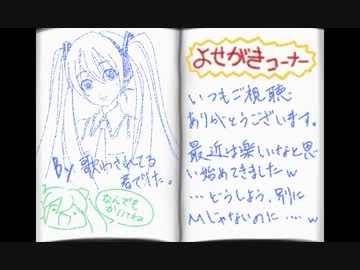 By 歌わされてる
者でした。
なんでも
かいてね
よせがきコーナー
いつもご視聴
ありがとうございます。
最近は楽しいなと思
い始めてきましたw
…どうしよう、別に
Mじゃないのに…. w